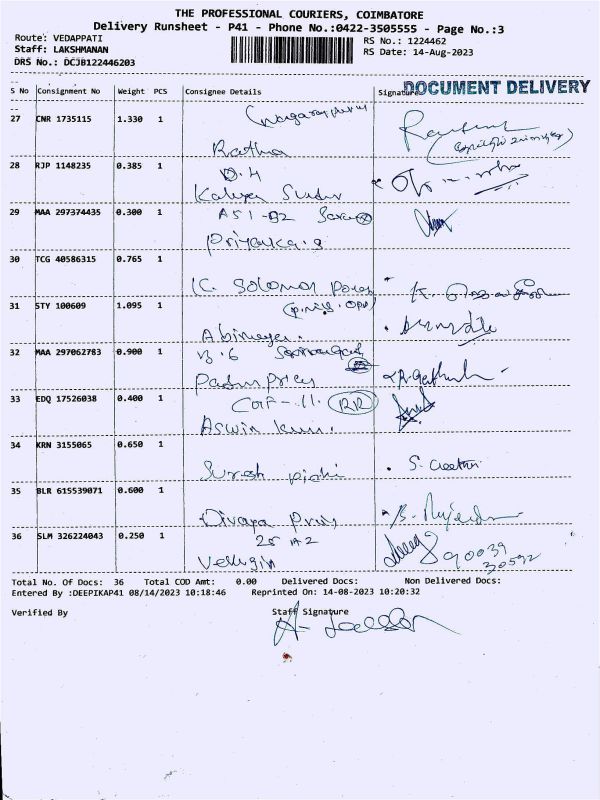 THE PROFESSIONAL COURIERS, COIMBATORE
Delivery Runsheet - P41 - Phone No.:0422-3505555 - Page No.:3
Route: VEDAPPATI
Staff: LAKSHMANAN
DRS No.: DCJB122446203
RS No.: 1224462
RS Date: 14-Aug-2023
DOCUMENT DELIVERY
S No Consignment No Weight PCS Consignee Details Signature
27 CNR 1735115 1.330 1
Rathna
28 RJP 1148235 0.385 1 D.4
29 MAA 297374435 0.300 1 A51-B2
Priyanka.S
30 TCG 40586315 0.765 1
K. Solomon
31 STY 100609 1.095 1
Abinaya.
32 MAA 297062783 0.900 1
33 EDQ 17526038 0.400 1 RR
Aswin
34 KRN 3155065 0.650 1
Suresh
35 BLR 615539071 0.600 1
Divaya
36 SLM 326224043 0.250 1 25 A2
90039
30592
Total No. Of Docs: 36 Total COD Amt: 0.00 Delivered Docs: Non Delivered Docs:
Entered By :DEEPIKAP41 08/14/2023 10:18:46 Reprinted On: 14-08-2023 10:20:32
Verified By Staff Signature